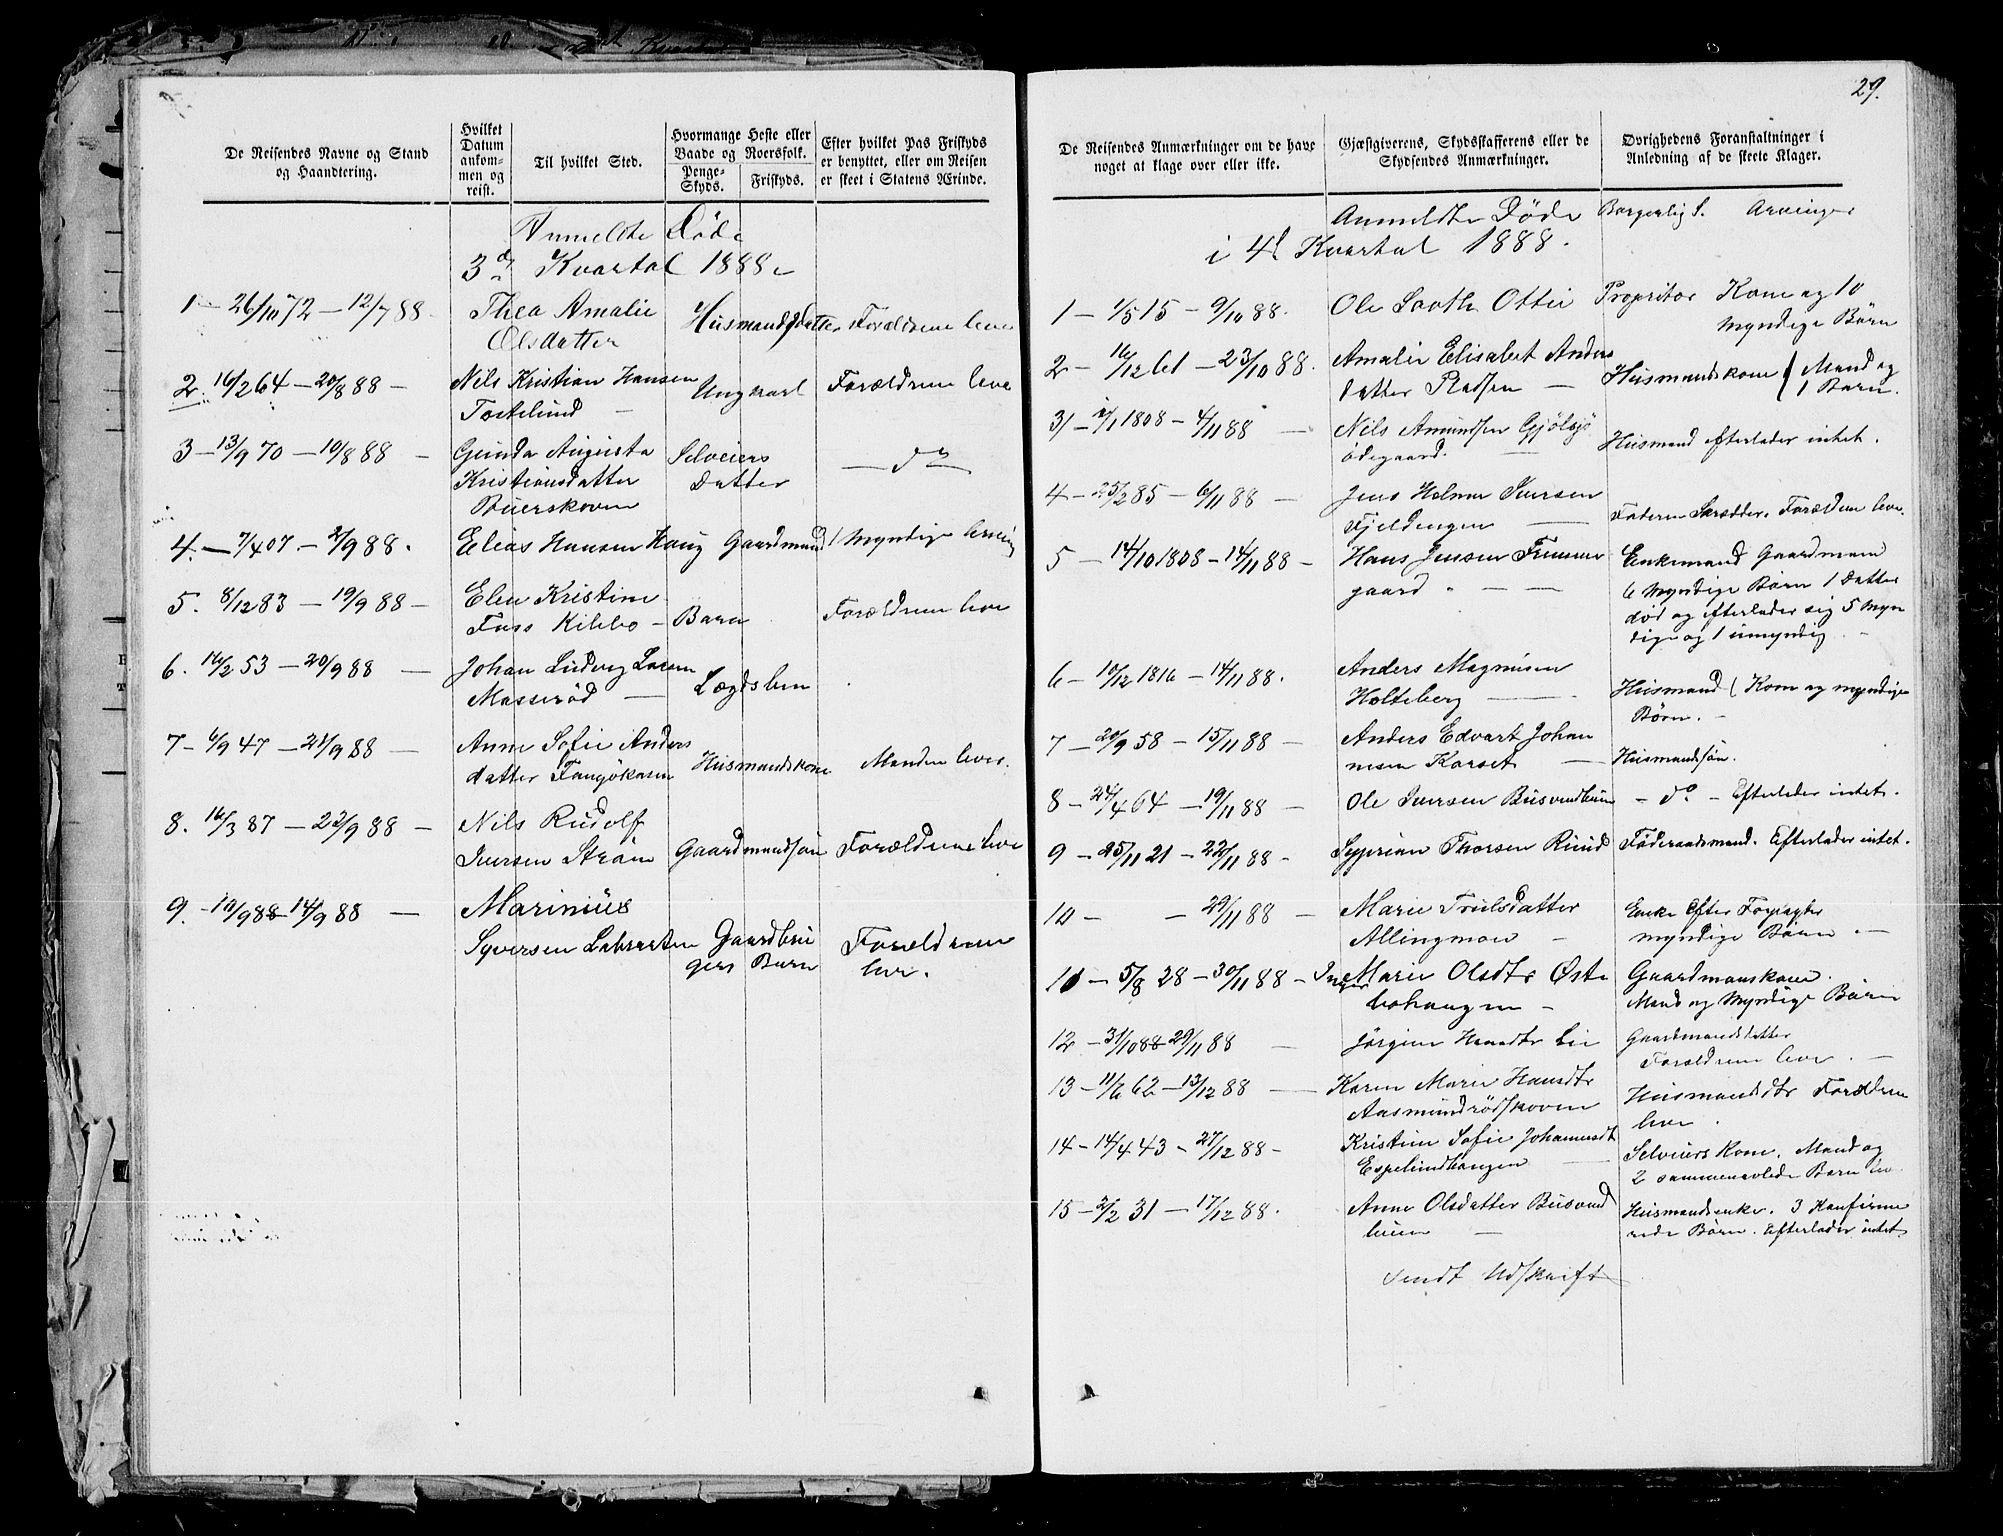 De Reisendes Navne og Stand
og Haandtering.
Hvilket
Datum
ankom-
men og
reist.
Til hvilket Sted.
Hvormange Heste eller
Baade og Roersfolk.
Penge-
Skyds.
Friskyds.
Efter hvilket Pas Friskyds
er benyttet, eller om Reisen
er skeet i Statens Ærinde.
Anmeldte Døde
3d Kvartal 1888
1 - 26/10 72 - 12/7 88 - Thea Amalie Husmandsdatter Forældrene leve
Olsdatter
2 16/2 64 - 20/8 88 - Nils Kristian Hansen Ungkarl Forældrene leve
Tostelund -
3 - 13/9 70 - 10/8 88 - Gunda Augusta Selveiers - do -
Kristiansdatter Datter
Buerskoven
4. - 7/4 07 - 2/9 88. Elias Hansen Haug Gaardmand 1 Myndige Arving
5. 8/12 83 - 19/9 88 - Elen Kristine
Fuss Kilebo - Barn Forældrene leve
6. 16/2 53 - 20/9 88 - Johan Ludvig Larsen Lægdslem
Masserød -
7 - 6/9 47 - 21/9 88 - Anne Sofie Anders Husmandskone Manden lever.
datter
8. 16/3 87 - 23/9 88 - Nils Rudolf
Iversen Strøm Gaardmandssøn Forældrene leve
9. - 10/9 88 - 14/9 88 - Marinius
Syversen Gaardbru Forældrene
gers Barn leve.
29.
De Reisendes Anmærkninger om de have
noget at klage over eller ikke.
Gjæstgiverens, Skydsskafferens eller de
Skydsendes Anmærkninger.
Øvrighedens Foranstaltninger i
Anledning af de skeete Klager.
Anmeldte Døde Borgerlig S. Arvinger
i 4d Kvartal 1888.
1 - 1/5 15 - 9/10 88. Ole Sooth Ottei Propritær Kone og 10
Myndige Børn
2 - 16/12 61 - 23/10 88. Amalie Elisabet Anders Husmandskone ( Mand og
datter Pladsen - 1 Barn.
3 - 1/1 1808 - 4/11 88 - Nils Amundsen Gjølsjø Husmand efterlader intet.
ødegaard.
4 - 25/2 85 - 6/11 88 - Jens Helmer Iversen
Fjeldengen - Faderen Skrædder. Forældrene leve.
5 - 14/10 1808 - 14/11 88 - Hans Jensen Enkemand Gaardmand
gaard - 6 Myndige Børn 1 Datter
død og efterlader sig 5 Myn
dige og 1 umyndig
6 - 10/12 1816 - 14/11 88. Anders Magnusen
Holteberg - Husmand ( Kone og myndige
Børn. -
7 - 20/9 58 - 15/11 88 - Anders Edvart Johan
nesen Korset - Husmandssøn.
8 - 24/4 64 - 19/11 88 - Ole Iversen Busvedhuen - do - Efterlader intet.
9 - 25/11 21 - 22/11 88 - Syprian Thorsen Ruud Føderaadsmand. Efterlader intet.
10 - - 29/11 88 - Marie Trulsdatter Enke Efter Forpagter
Allingmoen - myndige Børn. -
10 - 5/8 28 - 30/11 88 - Inger Marie Olsdtr Øste Gaardmanskone.
bohaugen - Mand og Myndige Børn
12 - 31/10 88 - 29/11 88 - Jørgine Hansdtr Lie Gaardmandsdatter
Forældrene leve. -
13 - 11/6 62 - 13/12 88 - Karen Marie Hansdtr Husmandsdtr Forældrene
Aasmundrødskoven leve.
14 - 14/4 43 - 27/12 88 - Kristine Sofie Johannesdt Selveiers Kone. Mand og
Espelundhaugen - 2 sammenavlede Børn lev
15 - 2/2 31 - 17/12 88. Anne Olsdatter Busved Husmandsenke. 3 Konfirme
huen - rede Børn. Efterlader intet
Sendt Udskrift